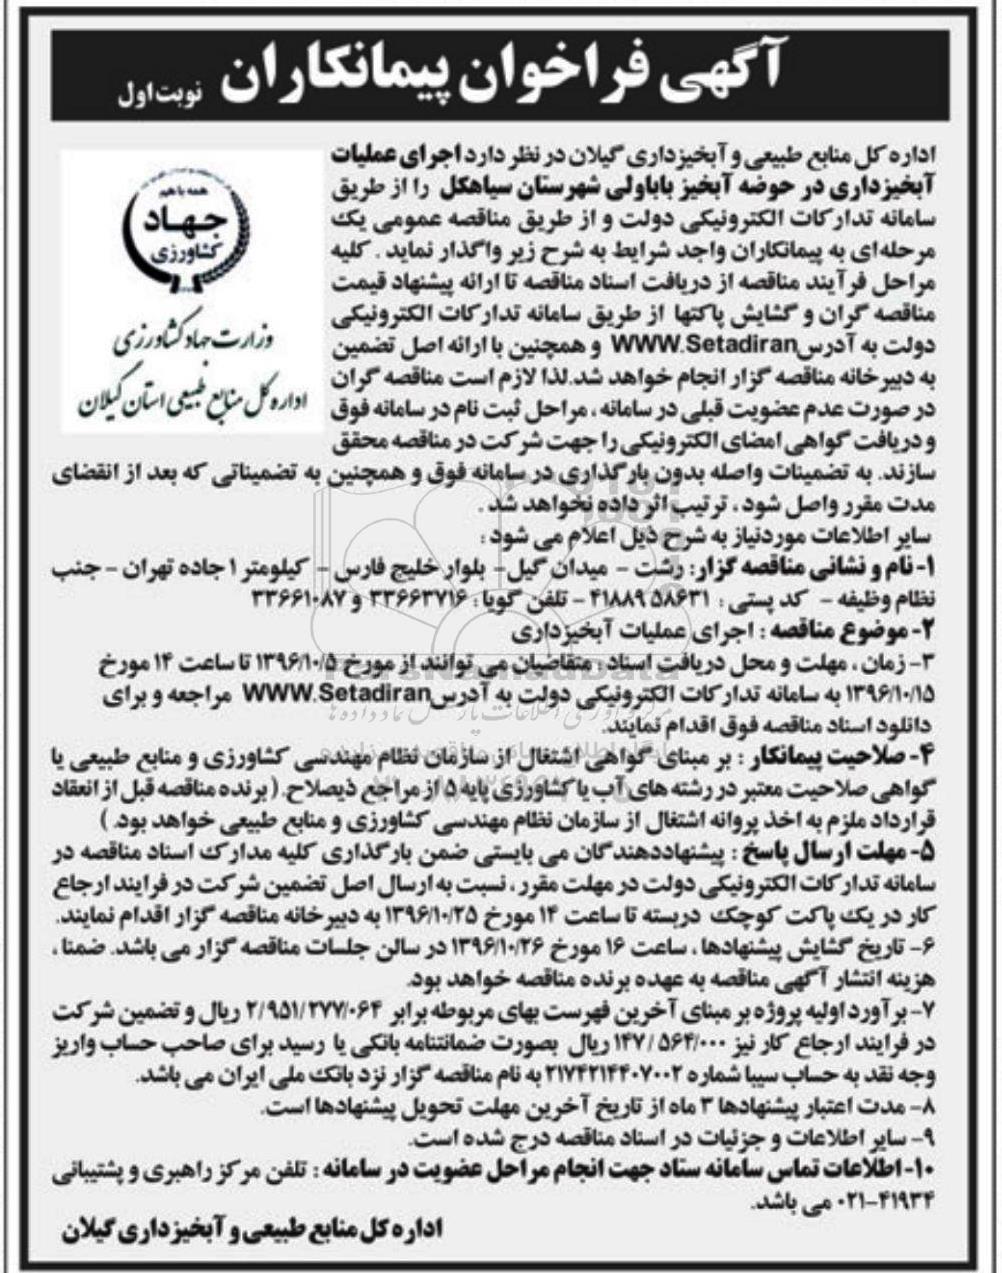 آگهی فراخوان پیمانکاران نوبت اول
اداره کل منابع طبیعی و آبخیزداری گیلان در نظر دارد اجرای عملیات
آبخیزداری در حوضه آبخیز باباولی شهرستان سیاهکل را از طریق
سامانه تدارکات الکترونیکی دولت و از طریق مناقصه عمومی یک
مرحله‌ای به پیمانکاران واجد شرایط به شرح زیر واگذار نماید . کلیه
مراحل فرآیند مناقصه از دریافت اسناد مناقصه تا ارائه پیشنهاد قیمت
مناقصه گران و گشایش پاکتها از طریق سامانه تدارکات الکترونیکی
دولت به آدرس WWW.Setadiran و همچنین با ارائه اصل تضمین
به دبیرخانه مناقصه گزار انجام خواهد شد.لذا لازم است مناقصه گران
در صورت عدم عضویت قبلی در سامانه ، مراحل ثبت نام در سامانه فوق
و دریافت گواهی امضای الکترونیکی را جهت شرکت در مناقصه محقق
سازند. به تضمینات واصله بدون بارگذاری در سامانه فوق و همچنین به تضمیناتی که بعد از انقضای
مدت مقرر واصل شود ، ترتیب اثر داده نخواهد شد .
سایر اطلاعات موردنیاز به شرح ذیل اعلام می شود :
۱- نام و نشانی مناقصه گزار: رشت - میدان گیل- بلوار خلیج فارس - کیلومتر ۱ جاده تهران - جنب
نظام وظیفه - کد پستی : ۵۸۶۳۱ ۴۱۸۸۹ - تلفن گویا : ۳۳۶۶۳۷۱۶ و ۳۳۶۶۱۰۸۷
۲- موضوع مناقصه : اجرای عملیات آبخیزداری
۳- زمان ، مهلت و محل دریافت اسناد : متقاضیان می توانند از مورخ ۱۳۹۶/۱۰/۵ تا ساعت ۱۴ مورخ
۱۳۹۶/۱۰/۱۵ به سامانه تدارکات الکترونیکی دولت به آدرس WWW.Setadiran مراجعه و برای
دانلود اسناد مناقصه فوق اقدام نمایند.
۴- صلاحیت پیمانکار : بر مبنای گواهی اشتغال از سازمان نظام مهندسی کشاورزی و منابع طبیعی یا
گواهی صلاحیت معتبر در رشته های آب یا کشاورزی پایه ۵ از مراجع ذیصلاح. ( برنده مناقصه قبل از انعقاد
قرارداد ملزم به اخذ پروانه اشتغال از سازمان نظام مهندسی کشاورزی و منابع طبیعی خواهد بود. )
۵- مهلت ارسال پاسخ : پیشنهاددهندگان می بایستی ضمن بارگذاری کلیه مدارک اسناد مناقصه در
سامانه تدارکات الکترونیکی دولت در مهلت مقرر ، نسبت به ارسال اصل تضمین شرکت در فرایند ارجاع
کار در یک پاکت کوچک دربسته تا ساعت ۱۴ مورخ ۱۳۹۶/۱۰/۲۵ به دبیرخانه مناقصه گزار اقدام نمایند.
۶- تاریخ گشایش پیشنهادها ، ساعت ۱۶ مورخ ۱۳۹۶/۱۰/۲۶ در سالن جلسات مناقصه گزار می باشد. ضمنا ،
هزینه انتشار آگهی مناقصه به عهده برنده مناقصه خواهد بود.
۷- برآورد اولیه پروژه بر مبنای آخرین فهرست بهای مربوطه برابر ۲/۹۵۱/۲۷۷/۰۶۴ ریال و تضمین شرکت
در فرایند ارجاع کار نیز ۱۴۷/۵۶۴/۰۰۰ ریال بصورت ضمانتنامه بانکی یا رسید برای صاحب حساب واریز
وجه نقد به حساب سیبا شماره ۲۱۷۴۲۱۴۴۰۷۰۰۲ به نام مناقصه گزار نزد بانک ملی ایران می باشد.
۸- مدت اعتبار پیشنهادها ۳ ماه از تاریخ آخرین مهلت تحویل پیشنهادها است.
۹- سایر اطلاعات و جزئیات در اسناد مناقصه درج شده است.
۱۰- اطلاعات تماس سامانه ستاد جهت انجام مراحل عضویت در سامانه : تلفن مرکز راهبری و پشتیبانی
۰۲۱-۴۱۹۳۴ می باشد.
اداره کل منابع طبیعی و آبخیزداری گیلان
همه با هم
جهاد
کشاورزی
وزارت جهاد کشاورزی
اداره کل منابع طبیعی استان گیلان
ParsNamadData